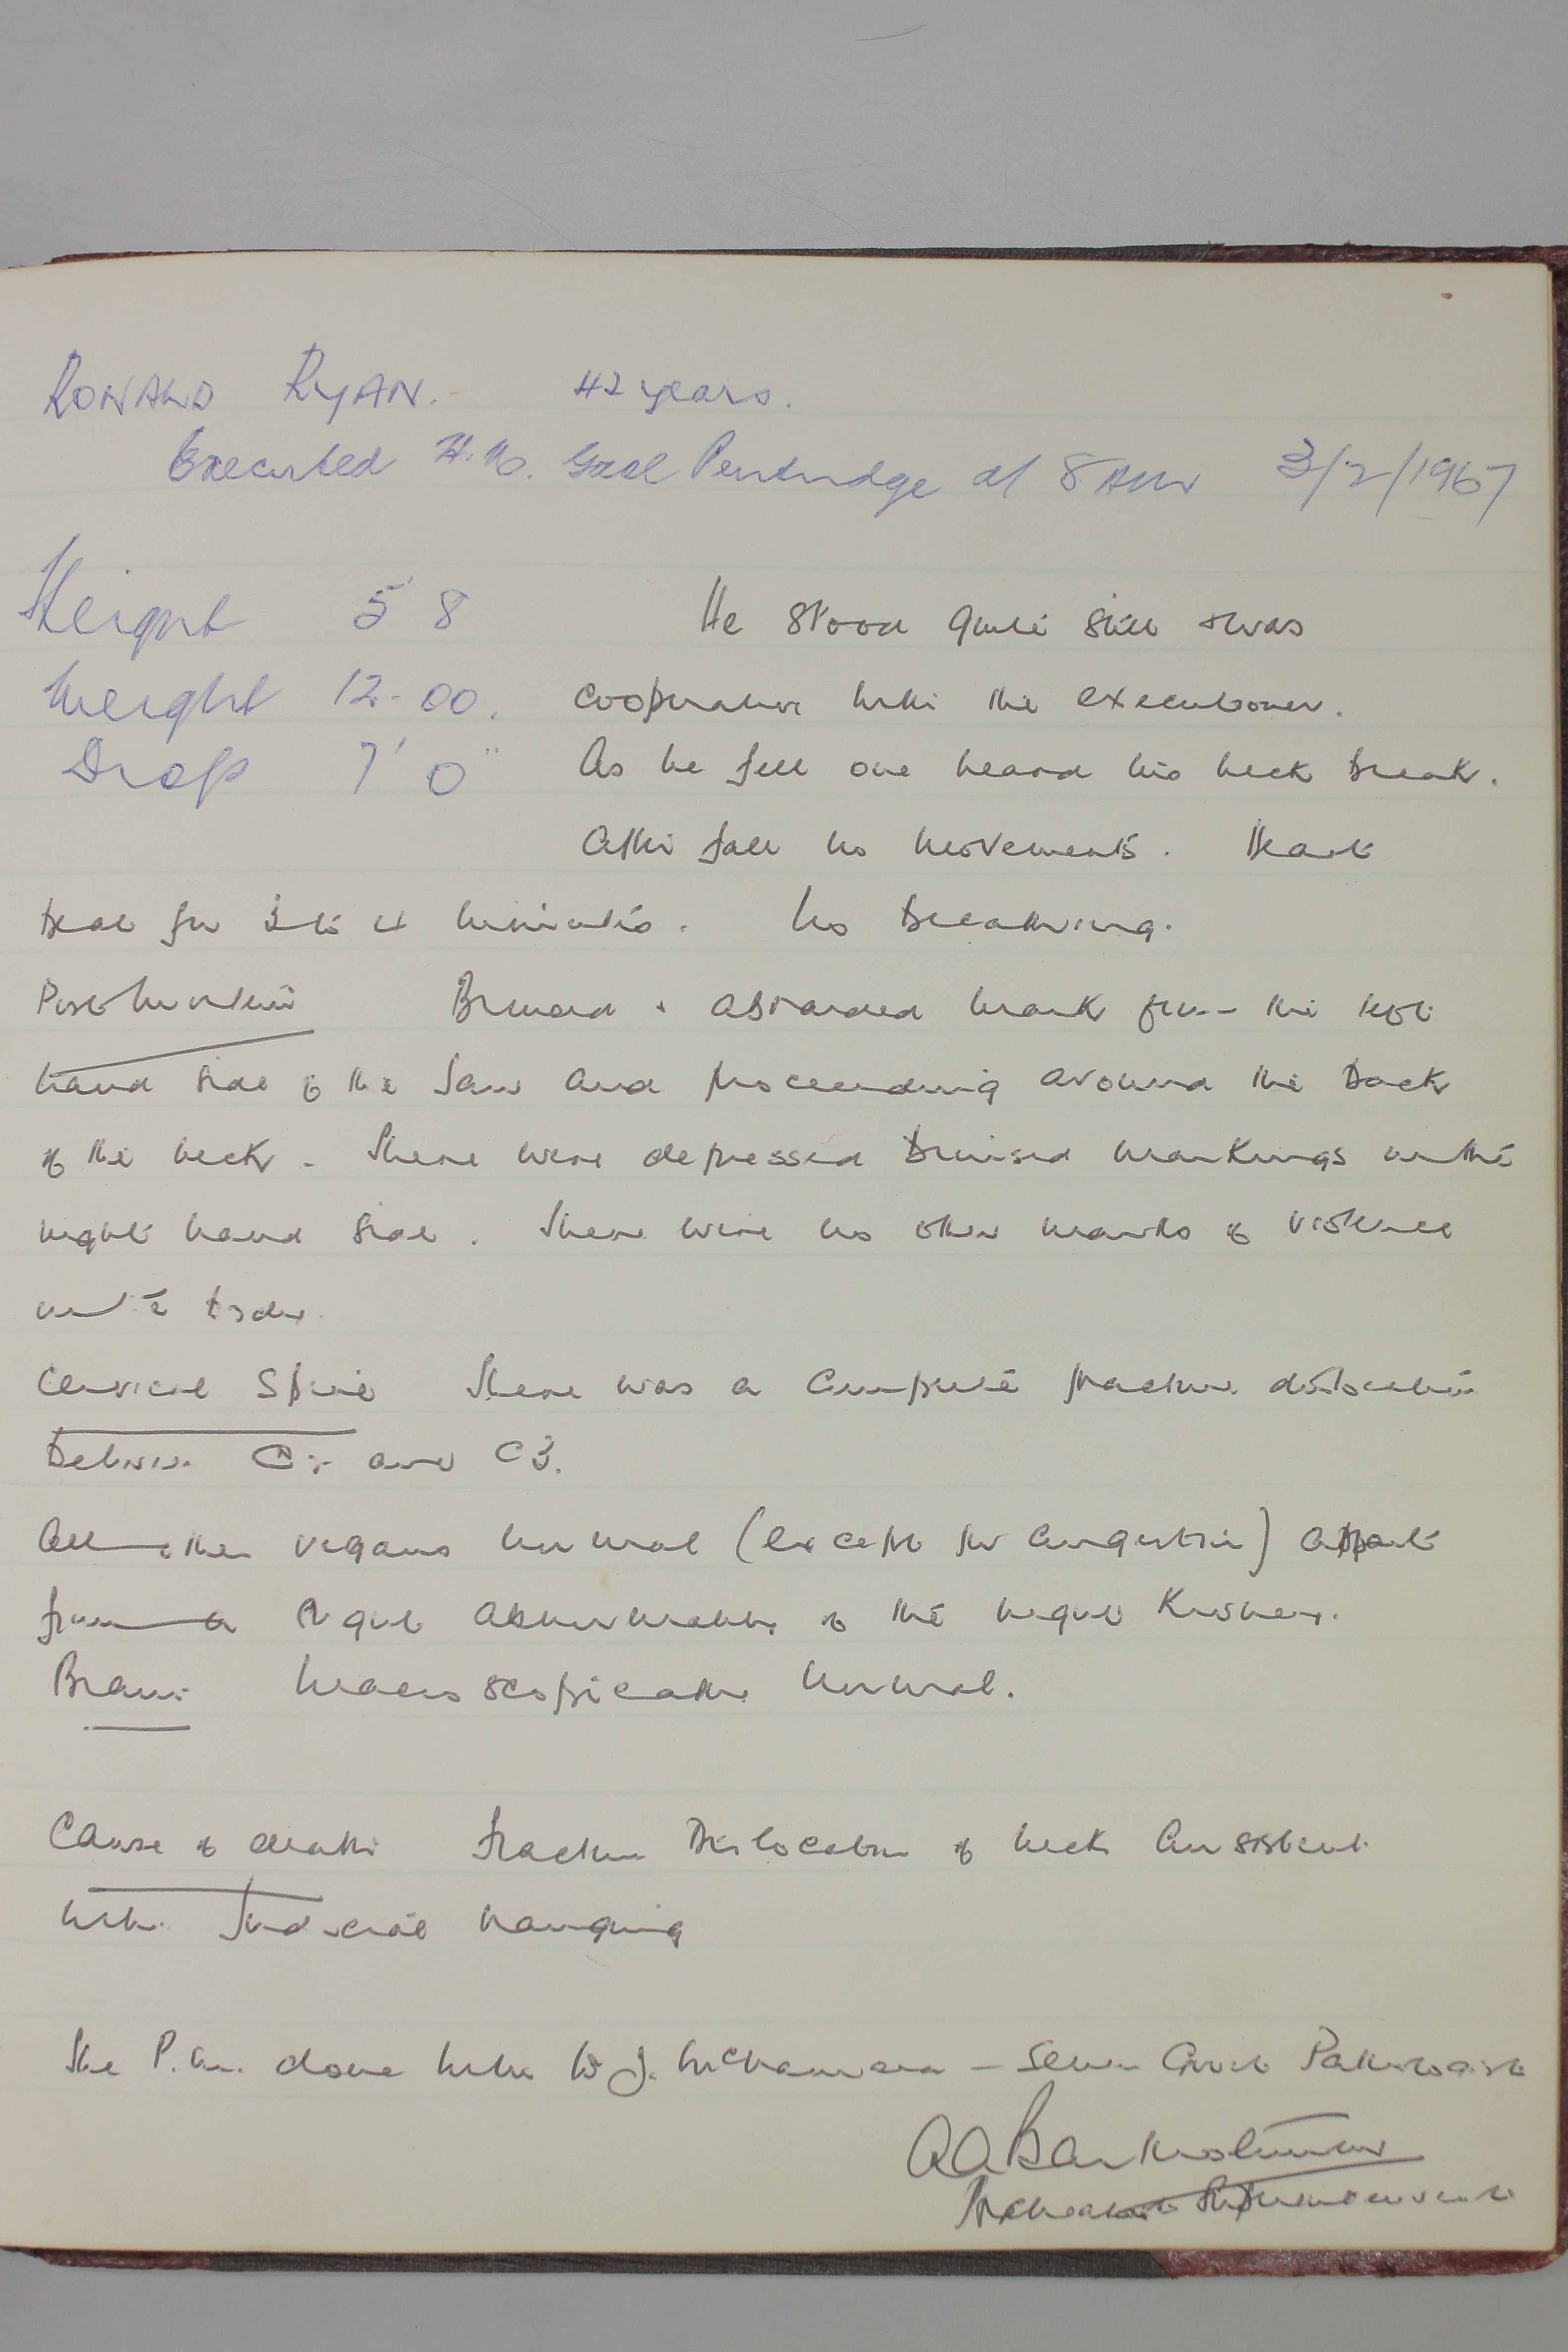 RONALD RYAN. - 42 years.
Executed H.M. Gaol Pentridge at 8 AM 3/2/1967
Height 5' 8 He stood quite still + was
Weight 12-00. cooperative with the executioner.
Drop 7' 0" As he fell one heard his neck break.
After fall no movements. Heart
beat for 3 to 4 minutes. No breathing.
Post Mortem Bruised + abraded mark from the left
hand side of the jaw and proceeding around the back
of the neck - There were depressed bruised markings on the
right hand side. There were no other marks of violence
on the body.
Cervical Spine There was a complete fracture dislocation
between C2 and C3.
All other organs normal (except for congestion) apart
from a abnormality of the right kidney.
Brain Macroscopically normal.
Cause of death Fracture Dislocation of neck consistent
with Judicial hanging
The P.M. done with Dr J. McNamara - Senior Govt Pathologist
A A Bartholomew
Psychiatrist Superintendent